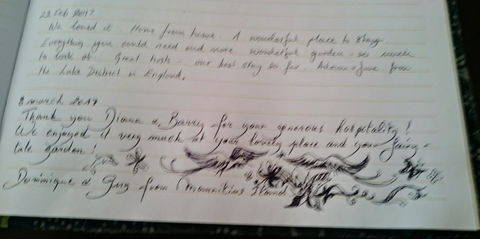 22 Feb 2017
We loved it Home from home. A wonderful place to stay
Everything you could need and more wonderful garden - so much
to look at Great hosts - our best stay so far. from
the Lake District in England.
8 march 2017
Thank you Diana & Barry for your generous hospitality!
We enjoyed it very much at your lovely place and your
garden!
Dominique & Guy from Mauritius Island